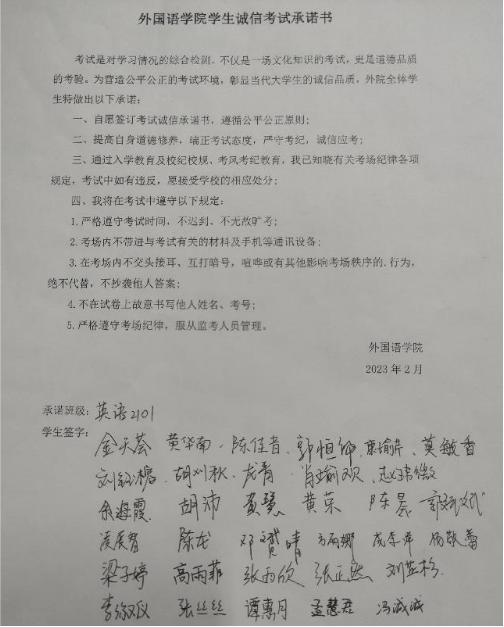 外国语学院学生诚信考试承诺书
考试是对学习情况的综合检测,不仅是一场文化知识的考试,更是道德品质
的考验。为营造公平公正的考试环境,彰显当代大学生的诚信品质,外院全体学
生特做出以下承诺:
一、自愿签订考试诚信承诺书,遵循公平公正原则;
二、提高自身道德修养,端正考试态度,严守考纪,诚信应考;
三、通过入学教育及校纪校规、考风考纪教育,我已知晓有关考场纪律各项
规定,考试中如有违反,愿接受学校的相应处分;
四、我将在考试中遵守以下规定:
1.严格遵守考试时间,不迟到、不无故旷考;
2.考场内不带进与考试有关的材料及手机等通讯设备;
3.在考场内不交头接耳、互打暗号,喧哗或有其他影响考场秩序的.行为,
绝不代替,不抄袭他人答案;
4.不在试卷上故意书写他人姓名、考号;
5.严格遵守考场纪律,服从监考人员管理。
外国语学院
2023年2月
承诺班级:英语2101
学生签字:
金天荟 黄华南 陈佳音 莫敏香
胡刘秋 龙青 肖瑜欢
余海霞 胡沛 黄慧 黄荣 陈晨
陈龙 邓赟晴
梁子婷 高雨菲 张雨欣
张丝丝 谭惠月 孟慧君 冯诚诚